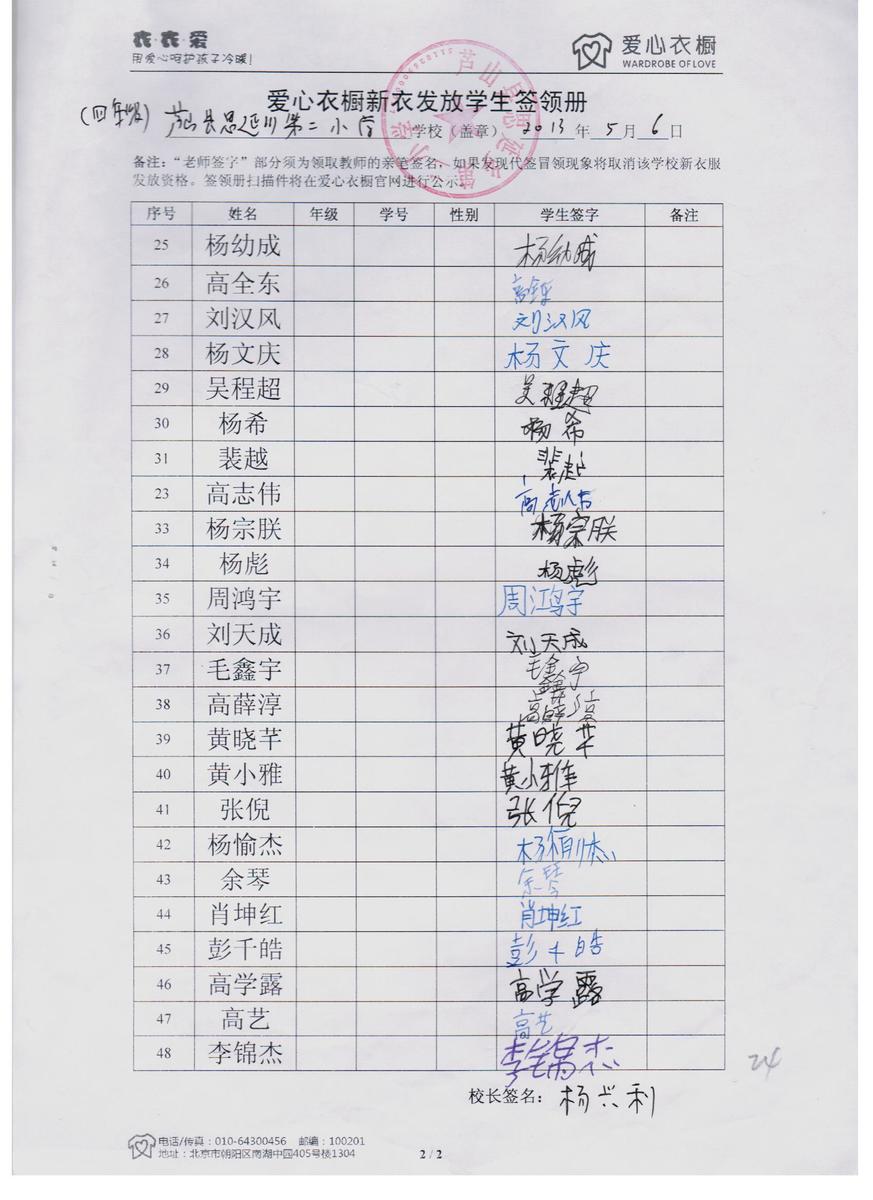 衣·衣·爱
用爱心呵护孩子冷暖!
爱心衣橱
WARDROBE OF LOVE
爱心衣橱新衣发放学生签领册
(四年级) 芦山县思延乡第二小学 学校(盖章) 2013 年 5 月 6 日
备注：“老师签字”部分须为领取教师的亲笔签名，如果发现代签冒领现象将取消该学校新衣服
发放资格。签领册扫描件将在爱心衣橱官网进行公示。
序号 姓名 年级 学号 性别 学生签字 备注
25 杨幼成 杨幼成
26 高全东 高全东
27 刘汉风 刘汉风
28 杨文庆 杨文庆
29 吴程超 吴程超
30 杨希 杨希
31 裴越 裴越
23 高志伟 高志伟
33 杨宗朕 杨宗朕
34 杨彪 杨彪
35 周鸿宇 周鸿宇
36 刘天成 刘天成
37 毛鑫宇 毛鑫宇
38 高薛淳 高薛淳
39 黄晓芊 黄晓芊
40 黄小雅 黄小雅
41 张倪 张倪
42 杨愉杰 杨愉杰
43 余琴 余琴
44 肖坤红 肖坤红
45 彭千皓 彭千皓
46 高学露 高学露
47 高艺 高艺
48 李锦杰 李锦杰
24
校长签名： 杨兴利
电话/传真：010-64300456 邮编：100201
地址：北京市朝阳区南湖中园405号楼1304
2 / 2